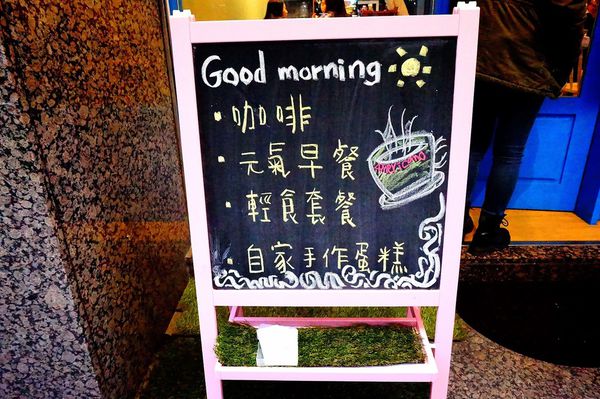 Good morning
· 咖啡
· 元氣早餐
· 輕食套餐
· 自家手作蛋糕